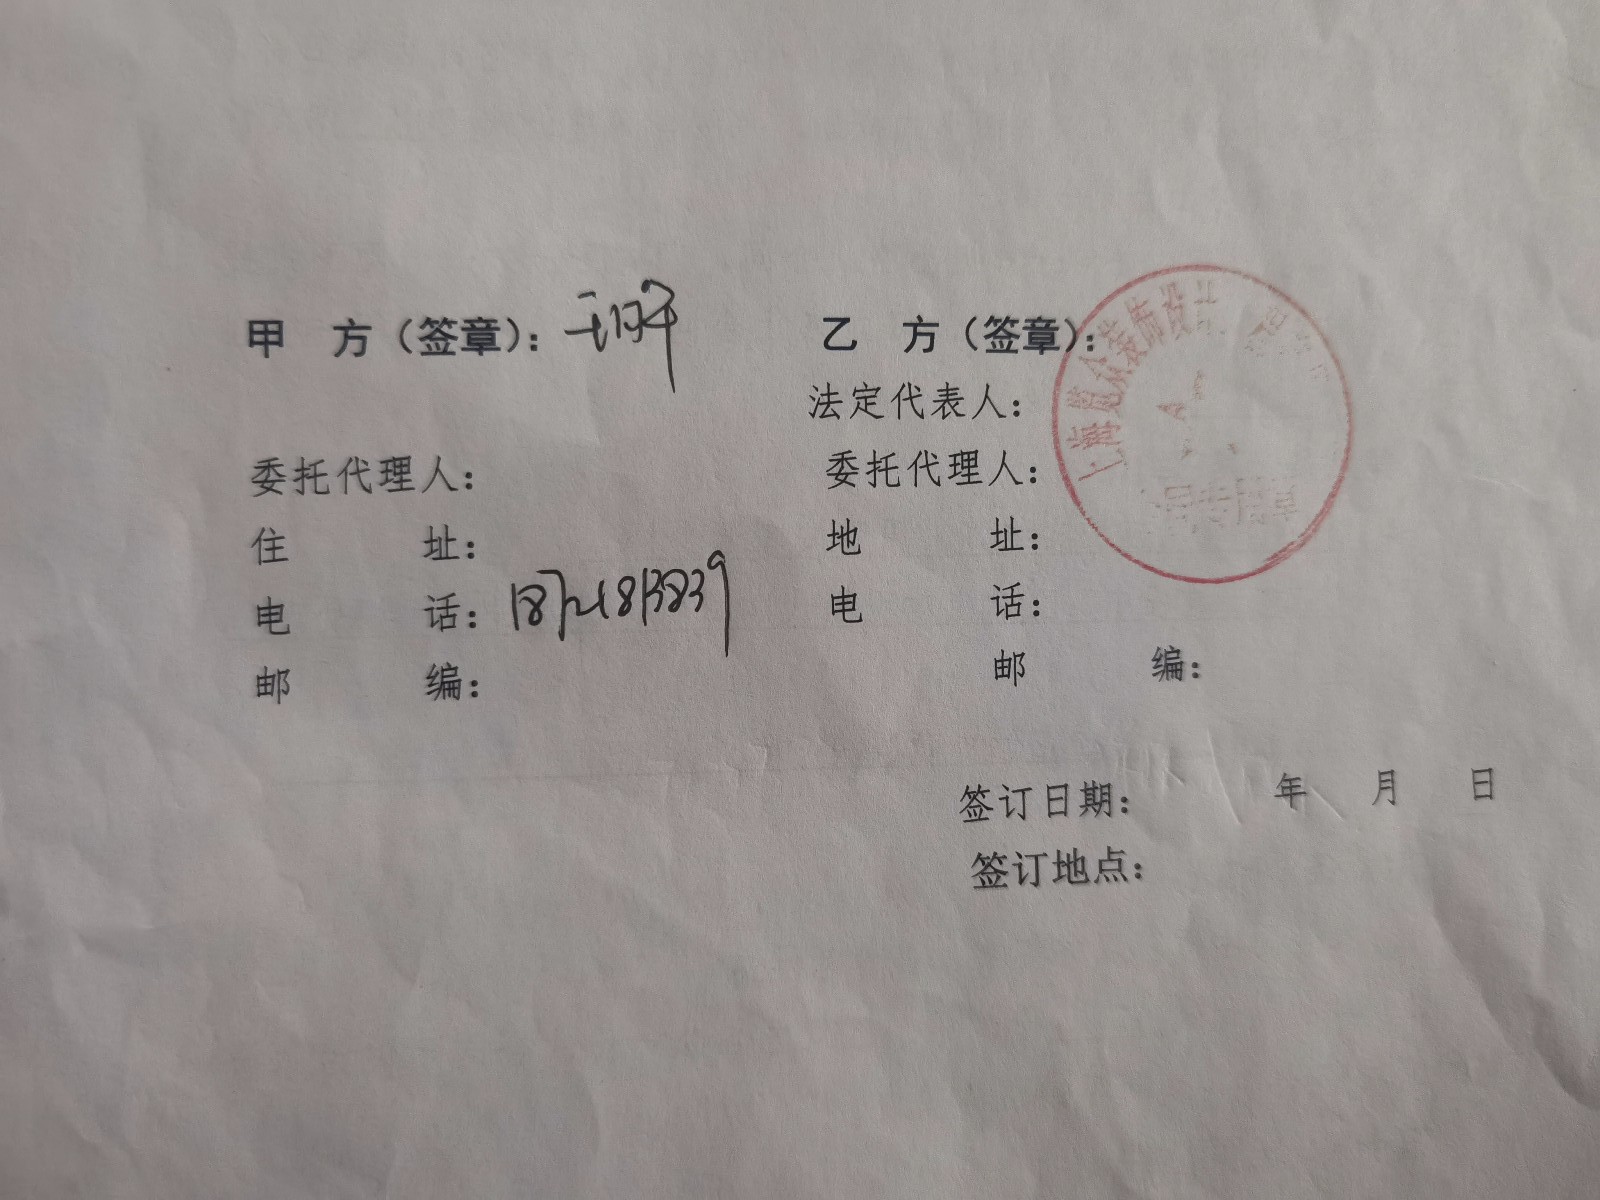 甲 方（签章）：
委托代理人：
住 址：
电 话：
邮 编：
乙 方（签章）：
法定代表人：
委托代理人：
地 址：
电 话：
邮 编：
上海览众装饰设计
专用章
签订日期： 年 月 日
签订地点：